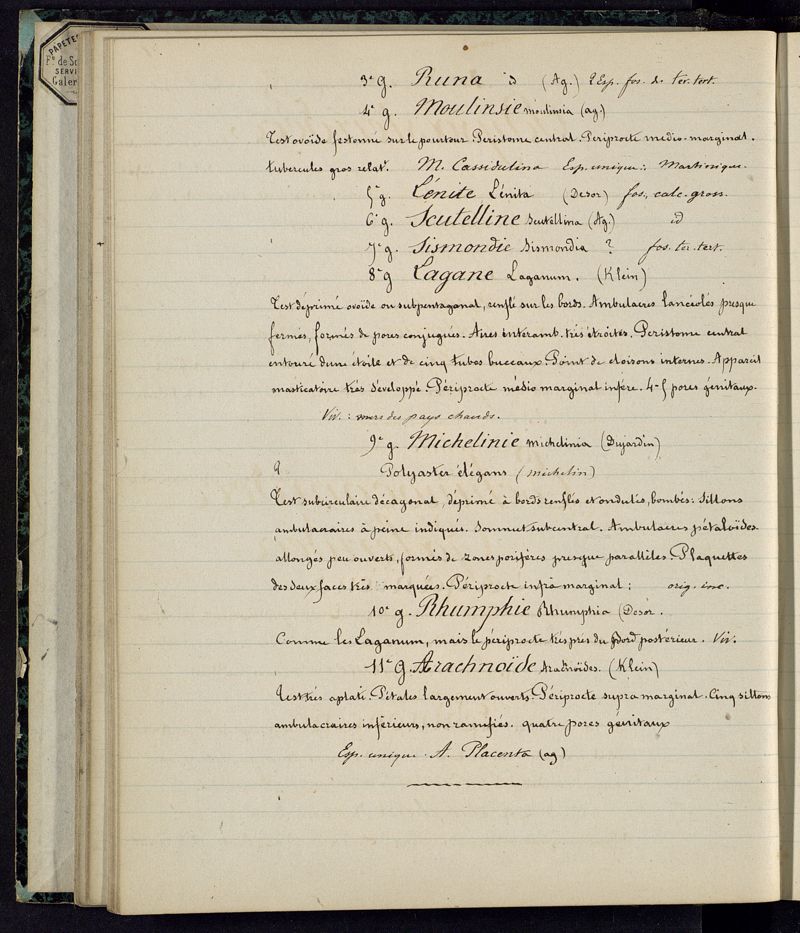 PAPETE
Fe. de So
SERVI
Galer
3e g. Runa id (Ag.) 2 Esp. fos. des ter. tert.
4e g. Moulinsie moulinsia (ag.)
Test ovoïde festonné sur le pourtour. Peristome central. Periprocte medio-marginal.
tubercules gros relat.t M. Cassidulina Esp. unique: Martinique.
5e g. Lénite Lénita (Desor) fos. calc. gross.
6e g. Scutelline Scutellina (Ag.) id
7e g. Sismondie Sismondia ? fos. ter. tert.
8e g Lagane Laganum. (Klein)
Test déprimé ovoïde ou subpentagonal, renflé sur les bords. Ambulacres lancéolés presque
fermés, formés de pores conjugués. Aires interamb. très étroites. Peristome central
entouré dune étoile et de cinq tubes buccaux. Point de cloisons internes. Appareil
masticatoire très développé. Périprocte médio marginal infère. 4-5 pores génitaux.
Viv. : mers des pays chauds.
9e g. Michelinie Michelinia (Dujardin)
Polyaster élégans (michelin)
Test subcirculaire décagonal, déprimé à bords renflés et ondulés, bombés: Sillons
ambulacraires à peine indiqués. Sommet subcentral. Ambulacres pétaloïdes
allongés peu ouverts, formés de zones porifères presque parallèles. Plaquettes
des deux faces très marquées. Périprocte infra marginal; orig. inc.
10e g. Rhumphie Rhumphia (Desor.
Comme les Laganum, mais le périprocte très près du bord postérieur. Viv.
11e g. Arachnoïde Arachnoïdes. (Klein)
Test très aplati. Pétales largement ouverts. Périprocte supra marginal. Cinq sillons
ambulacraires inférieurs, non ramifiés. quatre pores génitaux
Esp. unique. A. Placenta (ag)